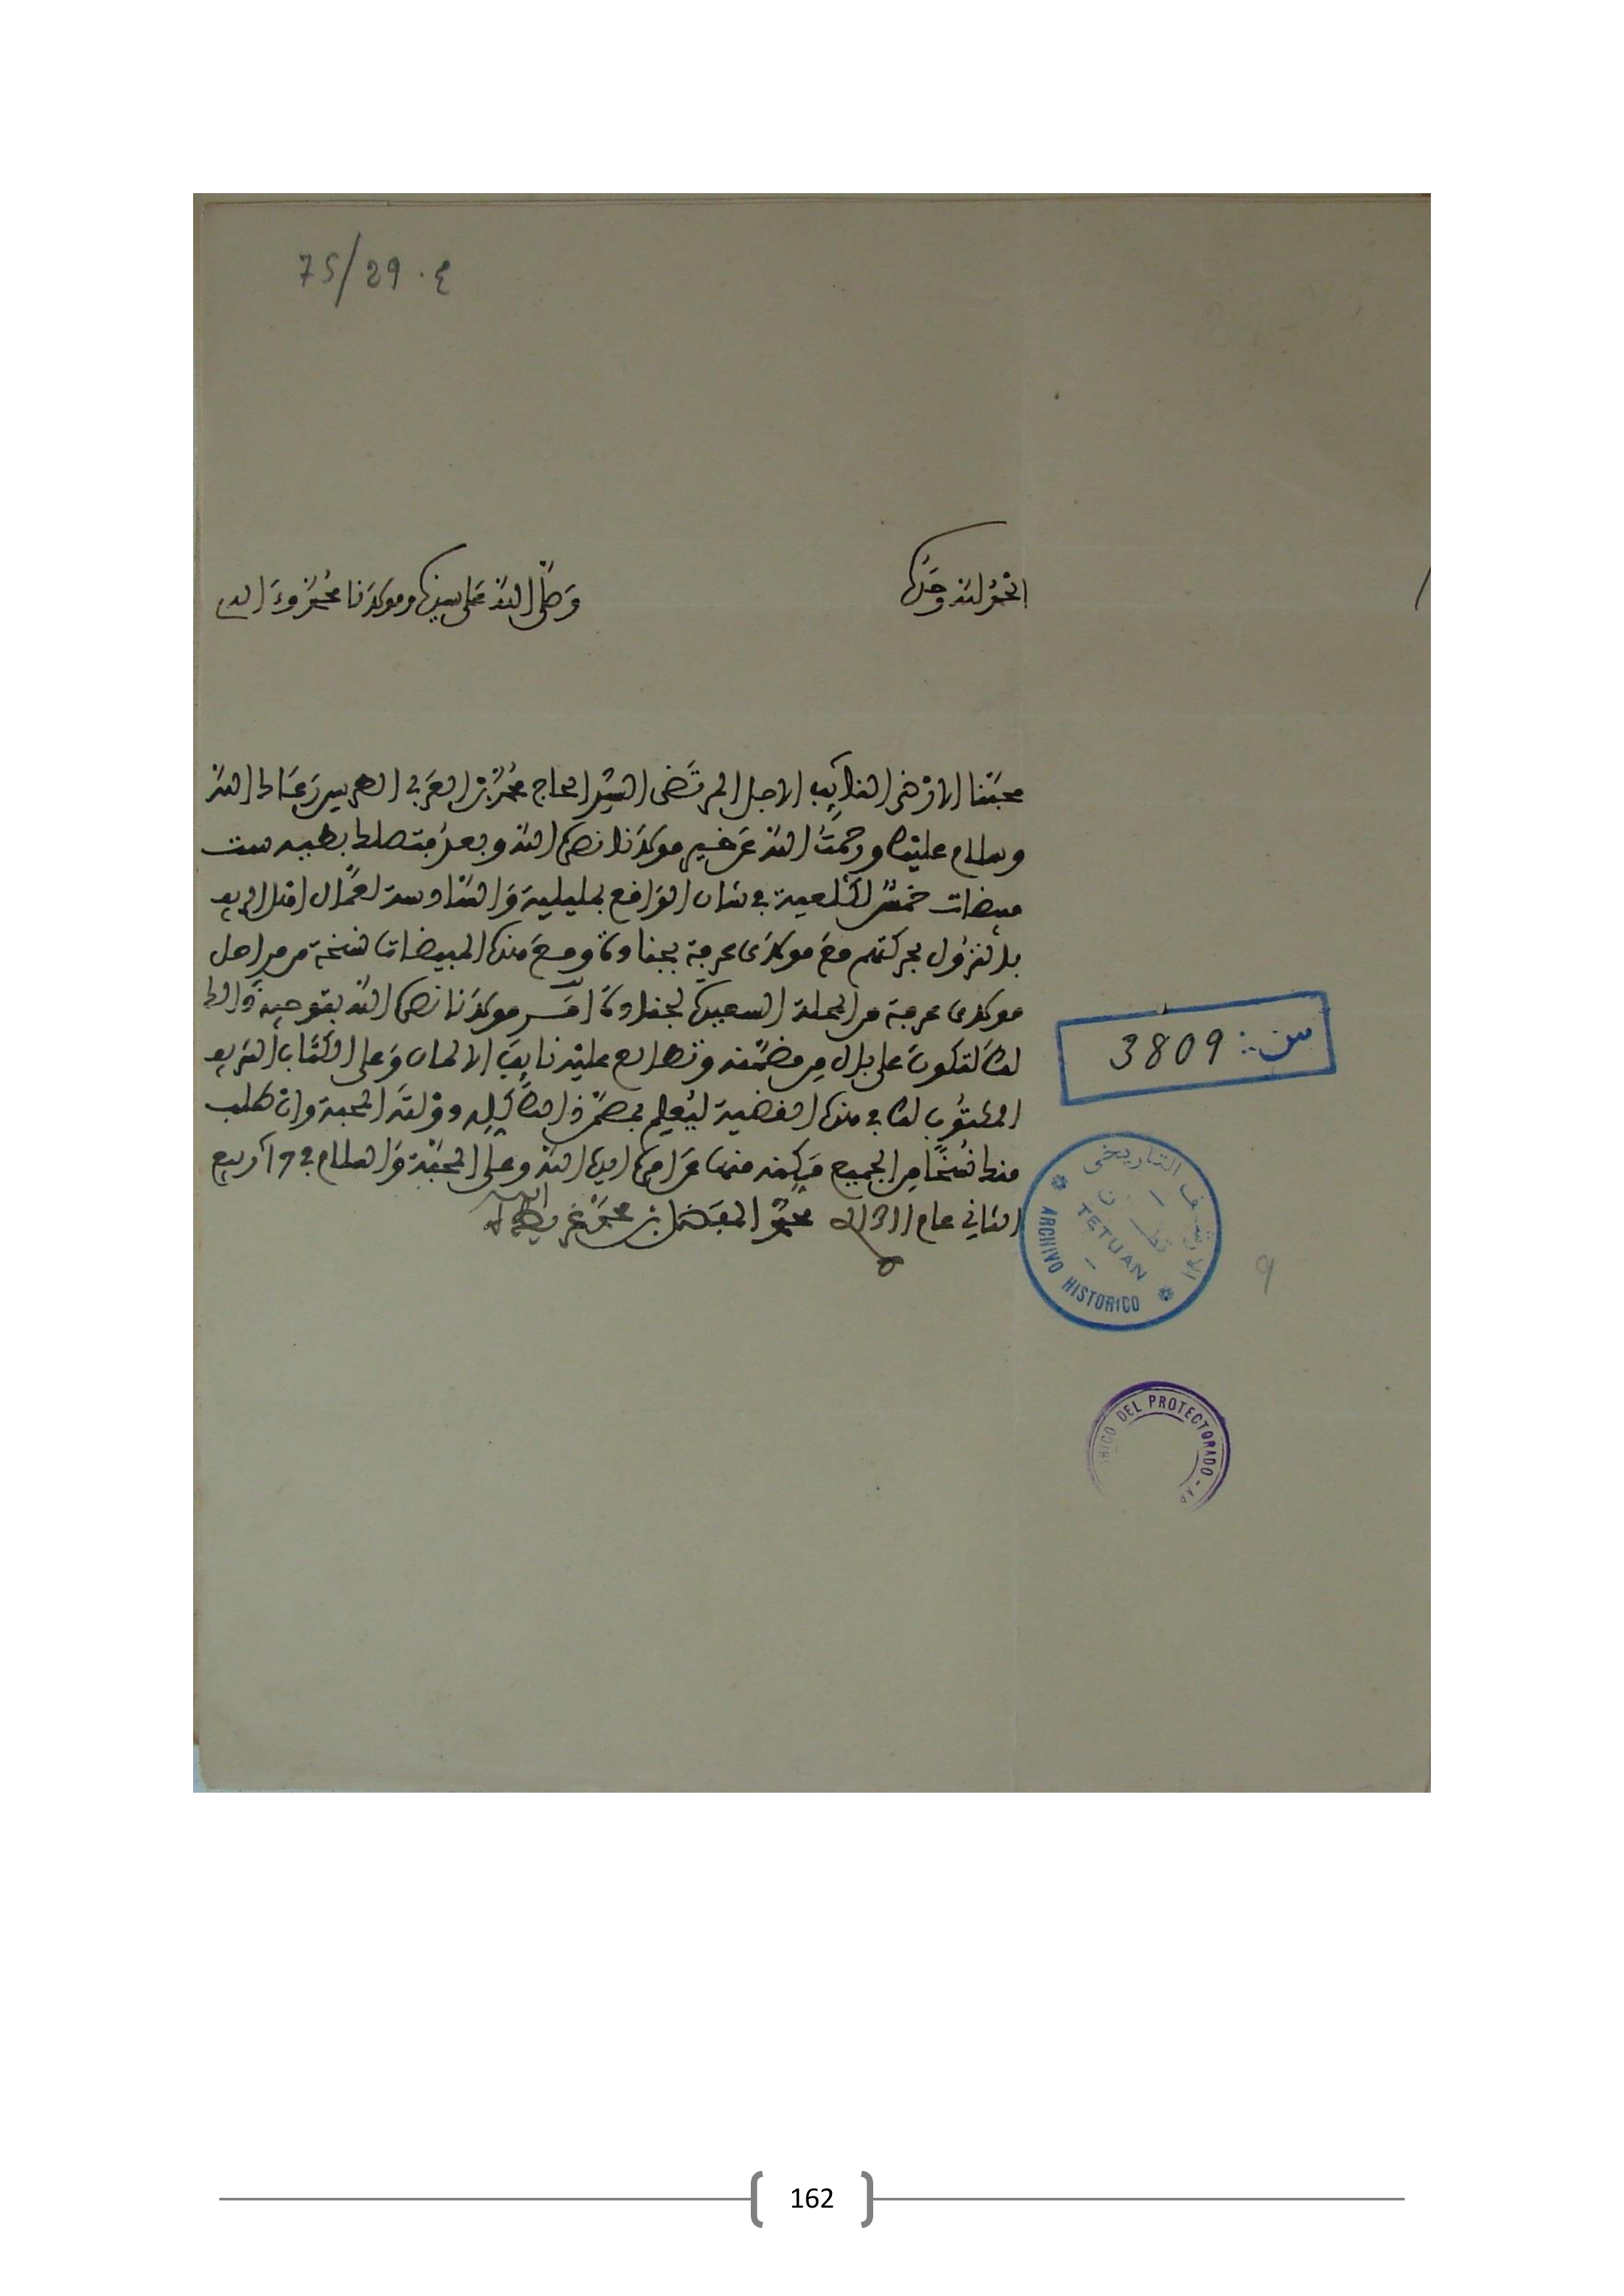 75/29 . ع
الحمد لله وحده
وصلى الله على سيدنا ومولانا محمد وءاله
محبنا الارضى النائب الاجل المرتضى السيد الحاج محمد بن العربي الطريس رعاك الله
وسلام عليك ورحمت الله عن خير مولانا نصره الله وبعد فتصلك بطيه ست
مبيضات خمس في شان الواقع بمليلية والسادسة لعمال اقلاع الريف
بالنزول بحركتهم مع مولاي عرفة بجنادة ومع هذه المبيضات نسخة من مراحل
مولاي عرفة من المحلة السعيدة لجنادة امر مولانا نصره الله بتوجيه ذالك
لك لتكون على بال من مضمنه وتطالع عليه نايب الالمان وعلى الكتاب الشريف
المكتوب لك في هذه القضية ليعلم بمصر ذلك المحبة وان طلب
منك نسخا من الجميع فمكنه منها عن امره ايده الله وعلى المحبة والسلام في 19 ربيع
الثاني عام 1311 محمد المفضل بن محمد غريط
س : 3809
الارشيف التاريخي
تطوان
TETUAN
ARCHIVO HISTORICO
9
DEL PROTECTORADO
162